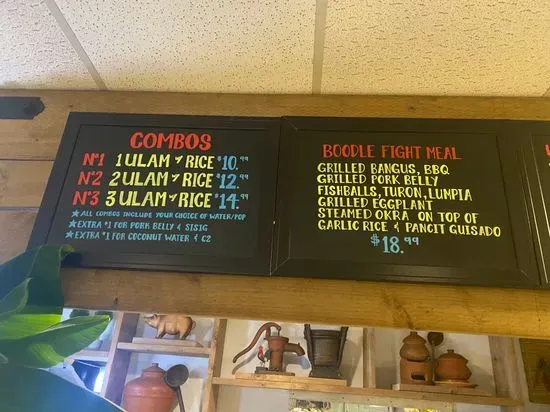 COMBOS
Nº1 1 ULAM & RICE $10.99
Nº2 2 ULAM & RICE $12.99
Nº3 3 ULAM & RICE $14.99
★ALL COMBOS INCLUDE YOUR CHOICE OF WATER/POP
★EXTRA $1 FOR PORK BELLY & SISIG
★EXTRA $1 FOR COCONUT WATER & C2
BOODLE FIGHT MEAL
GRILLED BANGUS, BBQ
GRILLED PORK BELLY
FISHBALLS, TURON, LUMPIA
GRILLED EGGPLANT
STEAMED OKRA ON TOP OF
GARLIC RICE & PANCIT GUISADO
$18.99